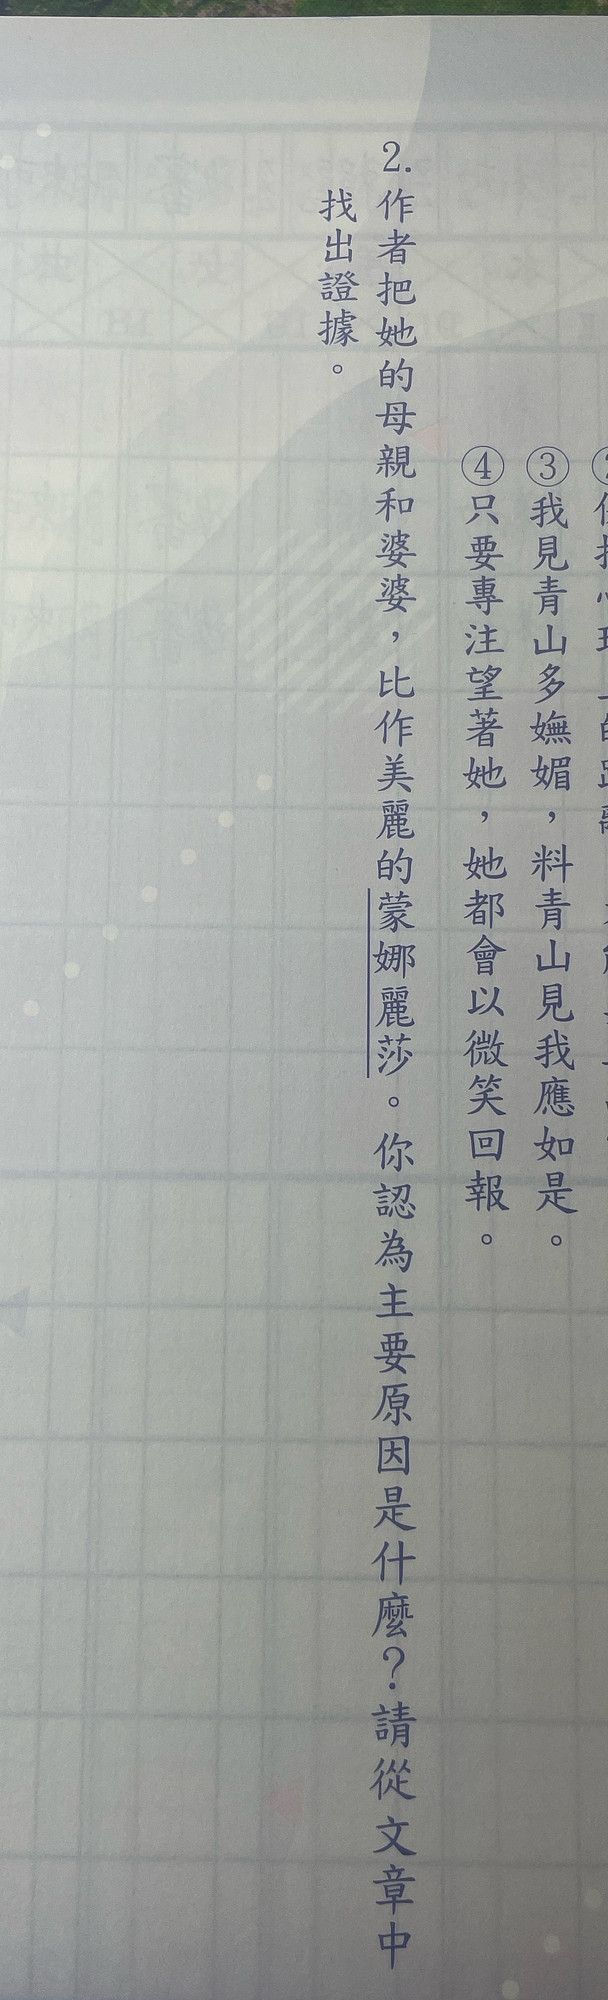 ③我見青山多嫵媚，料青山見我應如是。
④只要專注望著她，她都會以微笑回報。
2.作者把她的母親和婆婆，比作美麗的蒙娜麗莎。你認為主要原因是什麼？請從文章中
找出證據。